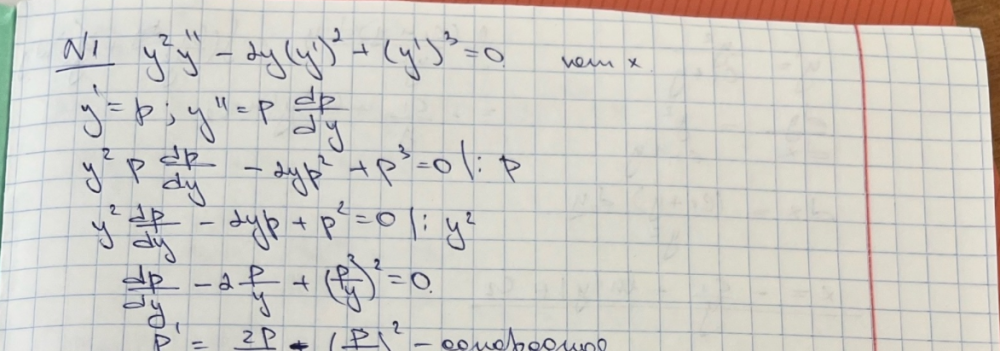 N1 y²y'' - 2y(y')² + (y')³ = 0 нет x.
y' = p ; y'' = p dp/dy
y² p dp/dy - 2yp² + p³ = 0 |: p
y² dp/dy - 2yp + p² = 0 |: y²
dp/dy - 2 p/y + (p/y)² = 0.
p' = 2p - (p )² - однородное